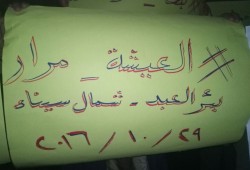 # العيشة _ مرار
بئر العبد - شمال سيناء
٢٠١٦ / ١٠ / ٢٩